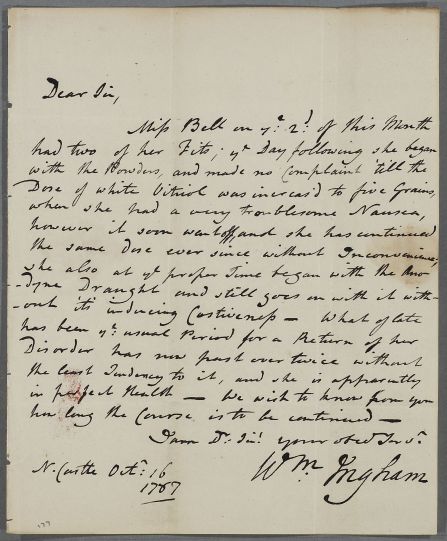 Dear Sir,
Miss Bell on yᵉ 2ᵈ of this Month
had two of her Fits; yᵉ Day following she began
with the Powders, and made no Complaint till the
Dose of white Vitriol was increas'd to five Grains,
when she had a very troublesome Nausea,
however it soon went off, and she has continued
the same Dose ever since without Inconvenience,
she also at yᵉ proper Time began with the Ano-
-dyne Draught and still goes on with it with-
-out its inducing Costiveness — What of late
has been yᵉ usual Period for a Return of her
Disorder has now past over twice without
the least Tendency to it, and she is apparently
in perfect Health — We wish to know from you
how long the Course is to be continued —
I am Dʳ Sir! your obedᵗ Servᵗ
N.Castle Octʳ: 16 Wᵐ Ingham
1787
177